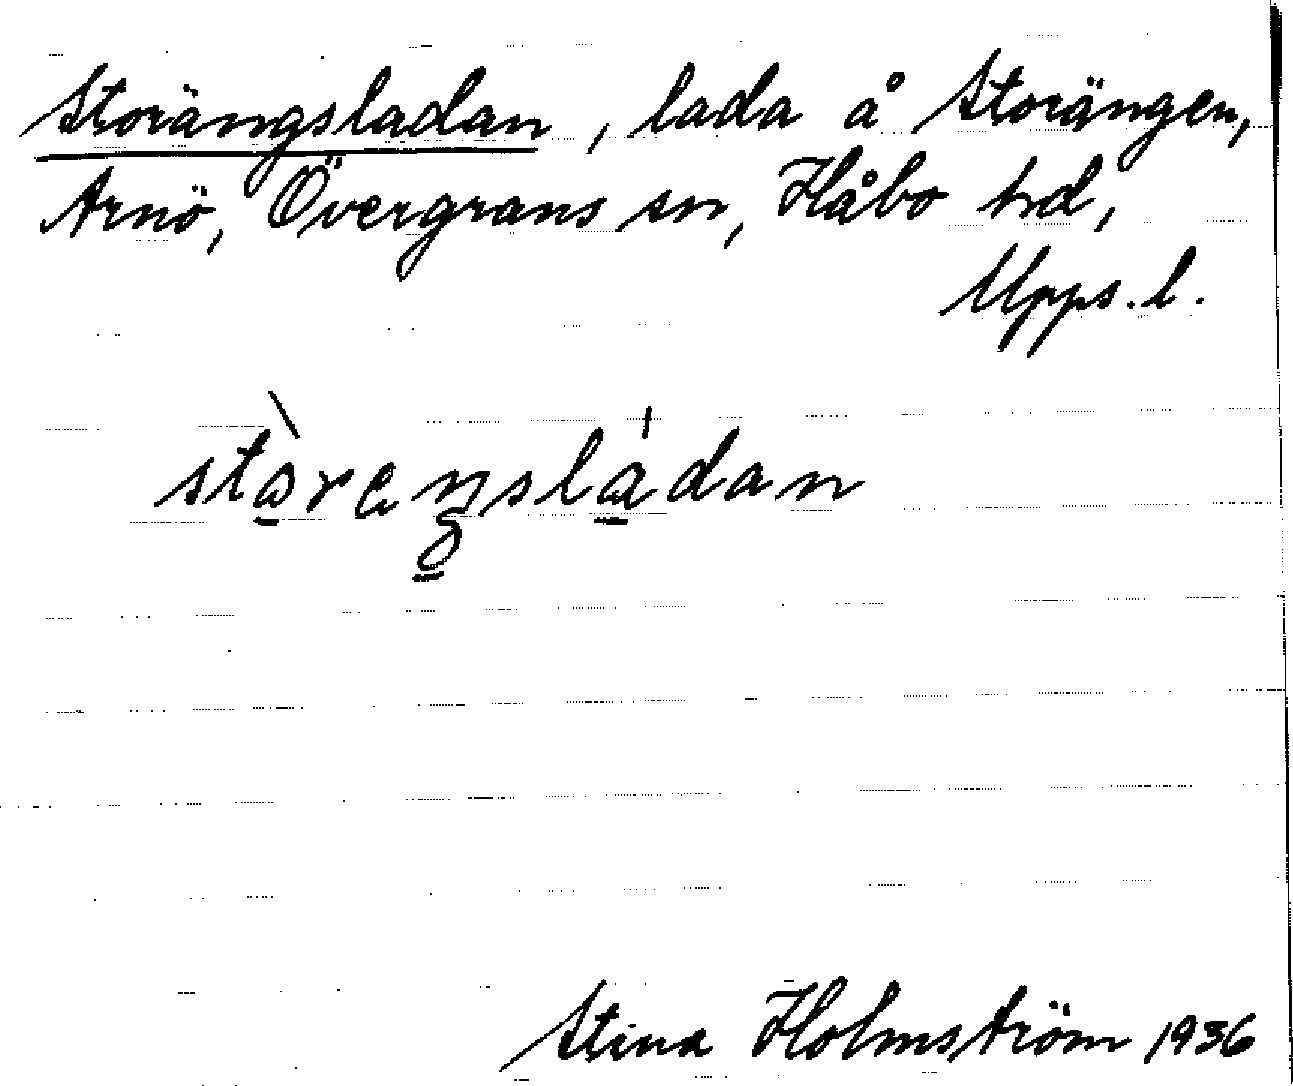 Storängsladan, lada å Storängen,
Arnö, Övergrans sn, Håbo hd,
Upps. l.
Stina Holmström 1936